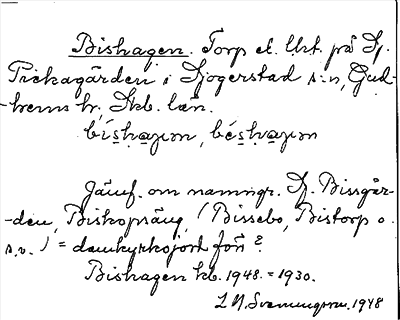 Bishagen. Torp el. lht. på Sj.
Prästagården i Sjogerstad s:n, Gud-
-hems hr. Skb. län.
bíshaɡɩon, béshaɡɩon
Jämf. om namngr. Sj. Bissgår-
-den, Biskopsäng, (Bissebo, Bistorp o.
s.v.) = domkyrkojord förr?
Bishagen kb. 1948. = 1930.
1948